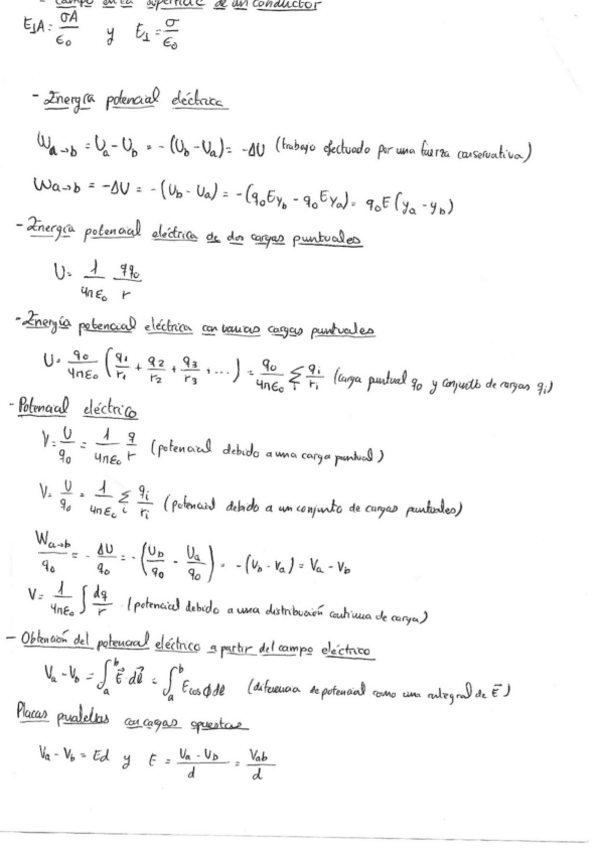 - Campo en la superficie de un conductor
E⊥A = σA/ε₀ y E⊥ = σ/ε₀
- Energía potencial eléctrica
Wa→b = Ua - Ub = -(Ub - Ua) = -ΔU (trabajo efectuado por una fuerza conservativa)
Wa→b = -ΔU = -(Ub - Ua) = -(q₀Eyb - q₀Eya) = q₀E(ya - yb)
- Energía potencial eléctrica de dos cargas puntuales
U = 1/4πε₀ qq₀/r
- Energía potencial eléctrica con varias cargas puntuales
U = q₀/4πε₀ (q₁/r₁ + q₂/r₂ + q₃/r₃ + ...) = q₀/4πε₀ Σi qi/ri (carga puntual q₀ y conjunto de cargas qi)
- Potencial eléctrico
V = U/q₀ = 1/4πε₀ q/r (potencial debido a una carga puntual)
V = U/q₀ = 1/4πε₀ Σi qi/ri (potencial debido a un conjunto de cargas puntuales)
Wa→b/q₀ = -ΔU/q₀ = -(Ub/q₀ - Ua/q₀) = -(Vb - Va) = Va - Vb
V = 1/4πε₀ ∫ dq/r (potencial debido a una distribución continua de carga)
- Obtención del potencial eléctrico a partir del campo eléctrico
Va - Vb = ∫ₐᵇ E⃗ dl⃗ = ∫ₐᵇ E cos ϕ dl (diferencia de potencial como una integral de E⃗)
Placas paralelas con cargas opuestas
Va - Vb = Ed y E = Va - Vb/d = Vab/d